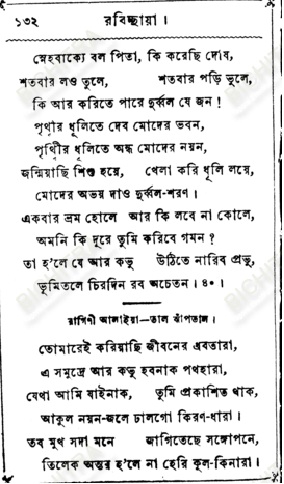 ১৩২ রবিচ্ছায়া।
স্নেহবাক্যে বল পিতা, কি করেছি দোষ,
শতবার লও তুলে, শতবার পড়ি ভুলে,
কি আর করিতে পারে দুর্ব্বল যে জন!
পৃথ্বীর ধূলিতে দেব মোদের ভবন,
পৃথ্বীর ধূলিতে অন্ধ মোদের নয়ন,
জন্মিয়াছি শিশু হয়ে, খেলা করি ধূলি লয়ে,
মোদের অভয় দাও দুর্ব্বল-শরণ।
একবার ভ্রম হোলে আর কি লবে না কোলে,
অমনি কি দূরে তুমি করিবে গমন?
তা হ'লে যে আর কভু উঠিতে নারিব প্রভু,
ভূমিতলে চিরদিন রব অচেতন। ৪০।
রাগিণী আলাইয়া—তাল ঝাঁপতাল।
তোমারেই করিয়াছি জীবনের ধ্রুবতারা,
এ সমুদ্রে আর কভু হবনাক পথহারা।
যেথা আমি যাইনাক, তুমি প্রকাশিত থাক,
আকুল নয়ন-জলে ঢালগো কিরণ-ধারা।
তব মুখ সদা মনে জাগিতেছে সঙ্গোপনে,
তিলেক অন্তর হ'লে না হেরি কূল-কিনারা।